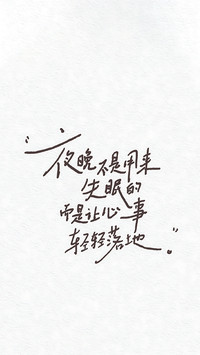 夜晚不是用来
失眠的
而是让心事
轻轻落地